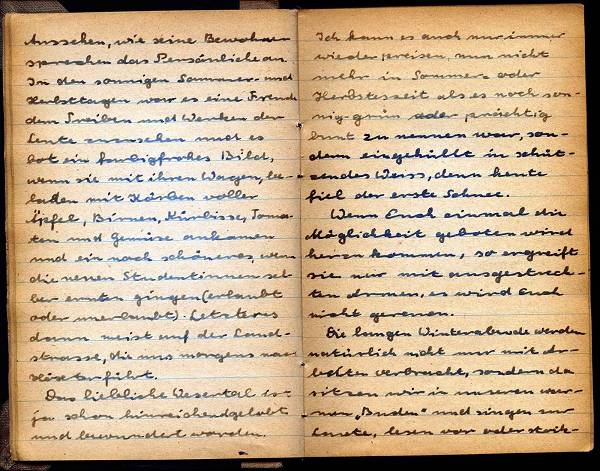 Aussehen, wie seine Bewohner
sprechen das Persönliche an.
In den sonnigen Sommer- und
Herbsttagen war es eine Freude
dem Treiben und Werken der
Leute zuzusehen und es
bot ein farbigfrohes Bild,
wenn sie mit ihren Wagen, be-
laden mit Körben voller
Äpfel, Birnen, Kürbisse, Toma-
ten und Gemüse ankamen
und ein noch schöneres, wenn
die neuen Studentinnen sel-
ber ernten gingen (erlaubt
oder unerlaubt). Letzteres
dann meist auf der Land-
strasse, die uns morgens nach
Höxter führt.
Das liebliche Wesertal ist
ja schon hinreichend gelobt
und bewundert worden.
Ich kann es auch nur immer
wieder preisen, nun nicht
mehr in Sommer- oder
Herbsteszeit als es noch son-
nig-grün oder prächtig
bunt zu nennen war, son-
dern eingehüllt in schüt-
zendes Weiss, denn heute
fiel der erste Schnee.
Wenn Euch einmal die
Möglichkeit geboten wird
herzukommen, so ergreift
sie nur mit ausgestreck-
ten Armen, es wird Euch
nicht gereuen.
Die langen Winterabende werden
natürlich nicht nur mit Ar-
beiten verbracht, sondern da
sitzen wir in unseren war-
men „Buden" und singen zur
Laute, lesen vor oder strik-